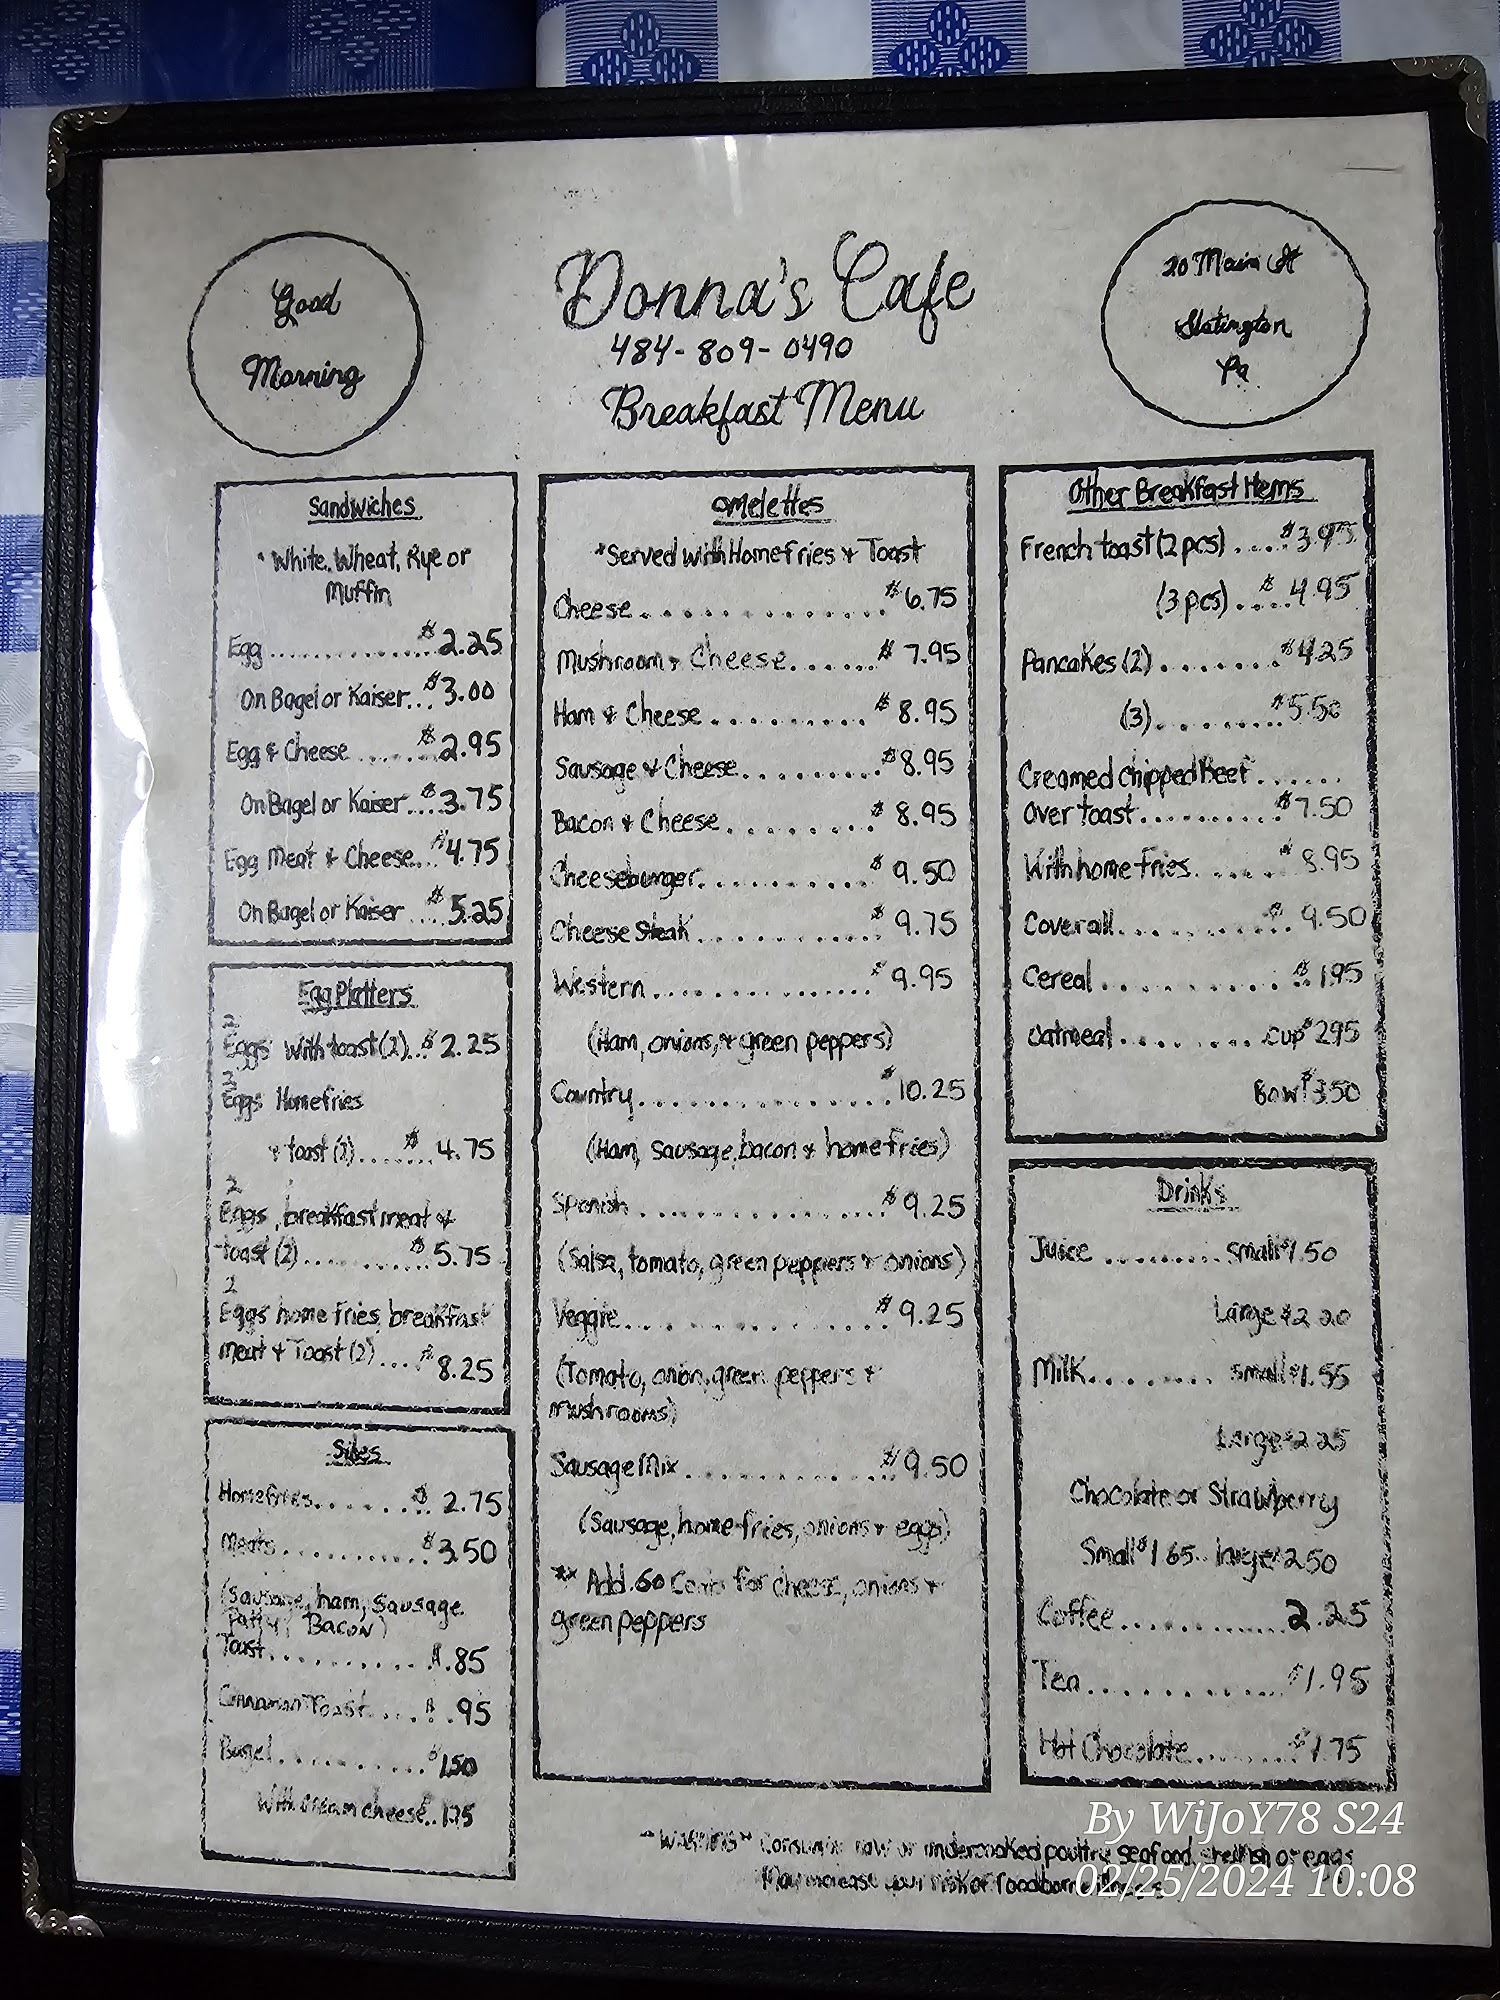 Good
Morning
Donna's Cafe
484-809-0490
Breakfast Menu
20 Main St
Slatington
Pa
Sandwiches
*White, Wheat, Rye or
Muffin
Egg..............$2.25
On Bagel or Kaiser...$3.00
Egg & Cheese.......$2.95
On Bagel or Kaiser...$3.75
Egg Meat & Cheese...$4.75
On Bagel or Kaiser....$5.25
Egg Platters
2
Eggs with toast (2)...$2.25
2
Eggs Homefries
& toast (2).......$4.75
2
Eggs, breakfast meat &
toast (2)............$5.75
2
Eggs home fries, breakfast
meat & Toast (2)....$8.25
Sides
Homefries........$2.75
Meats............$3.50
(sausage, ham, sausage
Patty, Bacon)
Toast...........$.85
Cinnamon Toast.....$.95
Bagel...........$1.50
With cream cheese..1.75
Omelettes
*Served with Homefries & Toast
Cheese.............$6.75
Mushroom & Cheese.......$7.95
Ham & Cheese..........$8.95
Sausage & Cheese.........$8.95
Bacon & Cheese.........$8.95
Cheeseburger...........$9.50
Cheese Steak............$9.75
Western...............$9.95
(Ham, onions, & green peppers)
Country...............$10.25
(Ham, sausage, bacon & home fries)
Spanish................$9.25
(Salsa, tomato, green peppers & onions)
Veggie................$9.25
(Tomato, onion, green peppers &
mushrooms)
Sausage Mix.............$9.50
(Sausage, home fries, onions & eggs)
** Add .60 Cents for cheese, onions &
green peppers
Other Breakfast Items
French toast (2 pcs).....$3.95
(3 pcs)....$4.95
Pancakes (2)........$4.25
(3).........$5.50
Creamed chipped Beef......
over toast..........$7.50
With home fries.......$8.95
Coverall...........$9.50
Cereal............$1.95
Oatmeal.........Cup $2.95
Bowl $3.50
Drinks
Juice.........small $1.50
Large $2.20
Milk........small $1.55
Large $2.25
Chocolate or Strawberry
Small $1.65.. large $2.50
Coffee.............2.25
Tea..............$1.95
Hot Chocolate........$1.75
**WARNING** Consuming raw or undercooked poultry, seafood, shellfish or eggs
May increase your risk of foodborne illness
By WiJoY78 S24
02/25/2024 10:08